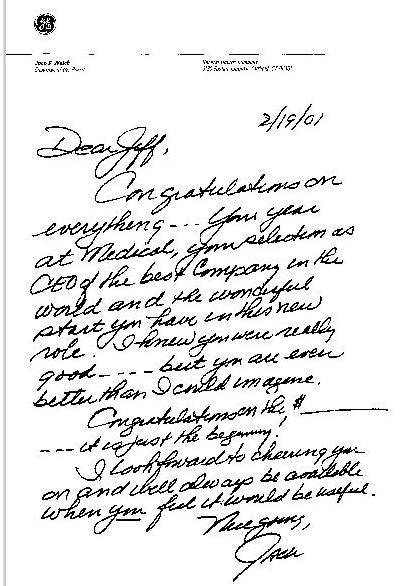 GE
John F. Welch
Chairman of the Board
General Electric Company
2/19/01
Dear Jeff,
Congratulations on
everything --- Your year
at Medical, your selection as
CEO of the best Company in the
world and the wonderful
start you have in this new
role. I knew you were really
good ---- but you are even
better than I could imagine.
Congratulations on the $
--- it is just the beginning!
I look forward to cheering you
on and will always be available
when you feel it would be useful.
Nice going,
Jack